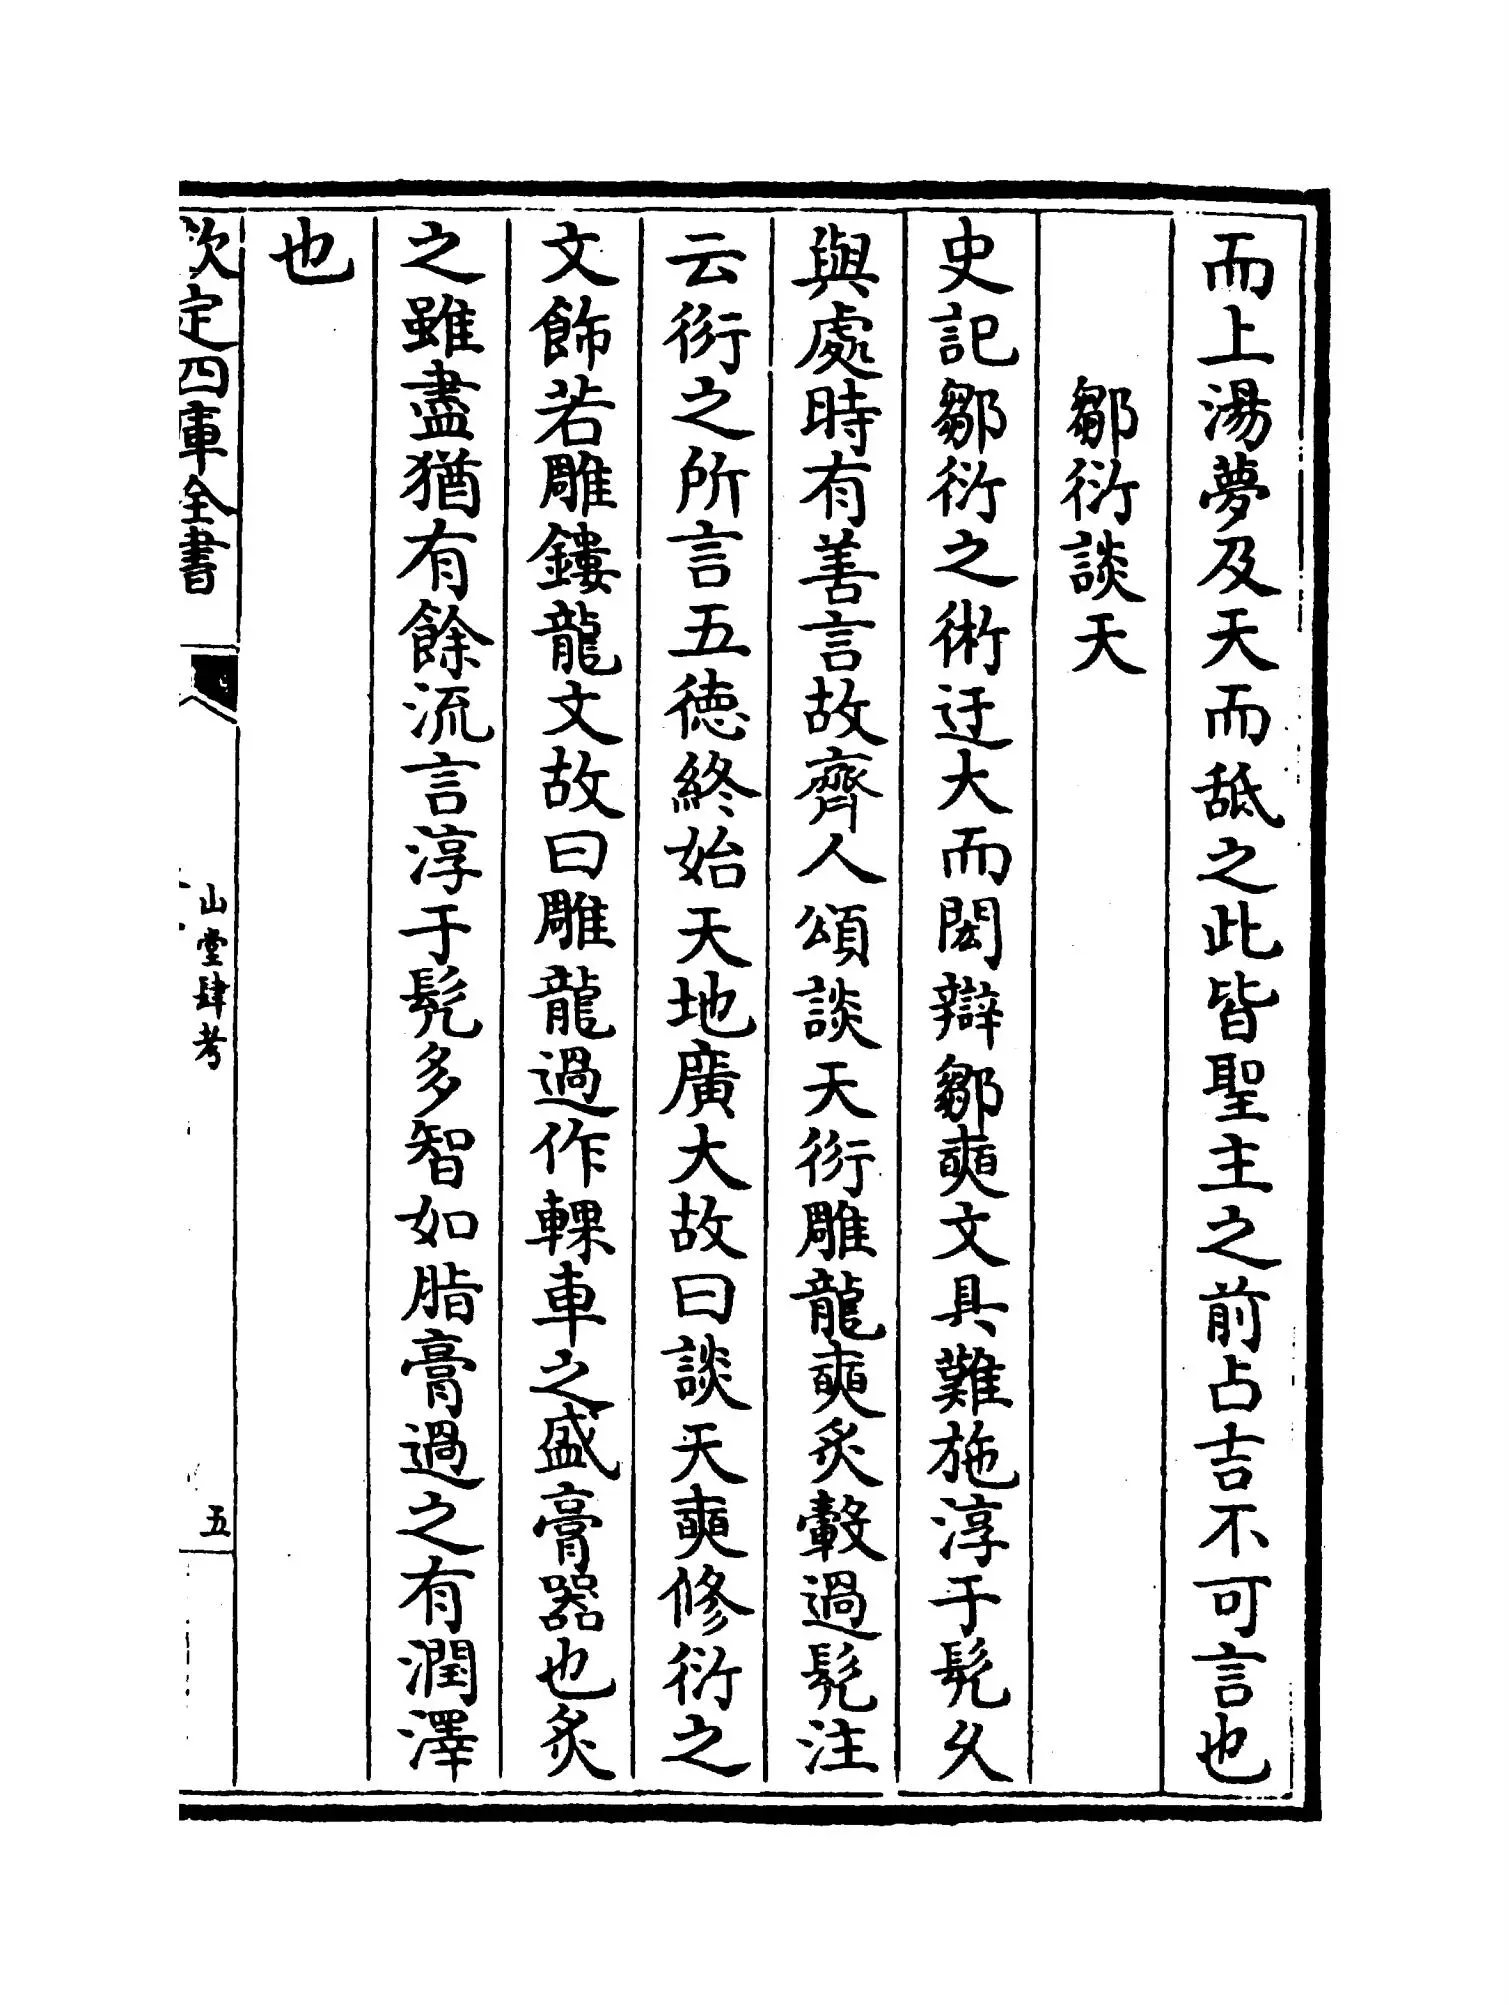 而上湯夢及天而舐之此皆聖主之前占吉不可言也
鄒衍談天
史記鄒衍之術迂大而閎辯鄒奭文具難施淳于髠久
與處時有善言故齊人頌談天衍雕龍奭炙轂過髠注
云衍之所言五徳終始天地廣大故曰談天奭修衍之
文飾若雕鏤龍文故曰雕龍過作輠車之盛膏器也炙
之雖盡猶有餘流言淳于髠多智如脂膏過之有潤澤
也
欽定四庫全書
山堂肆考
五